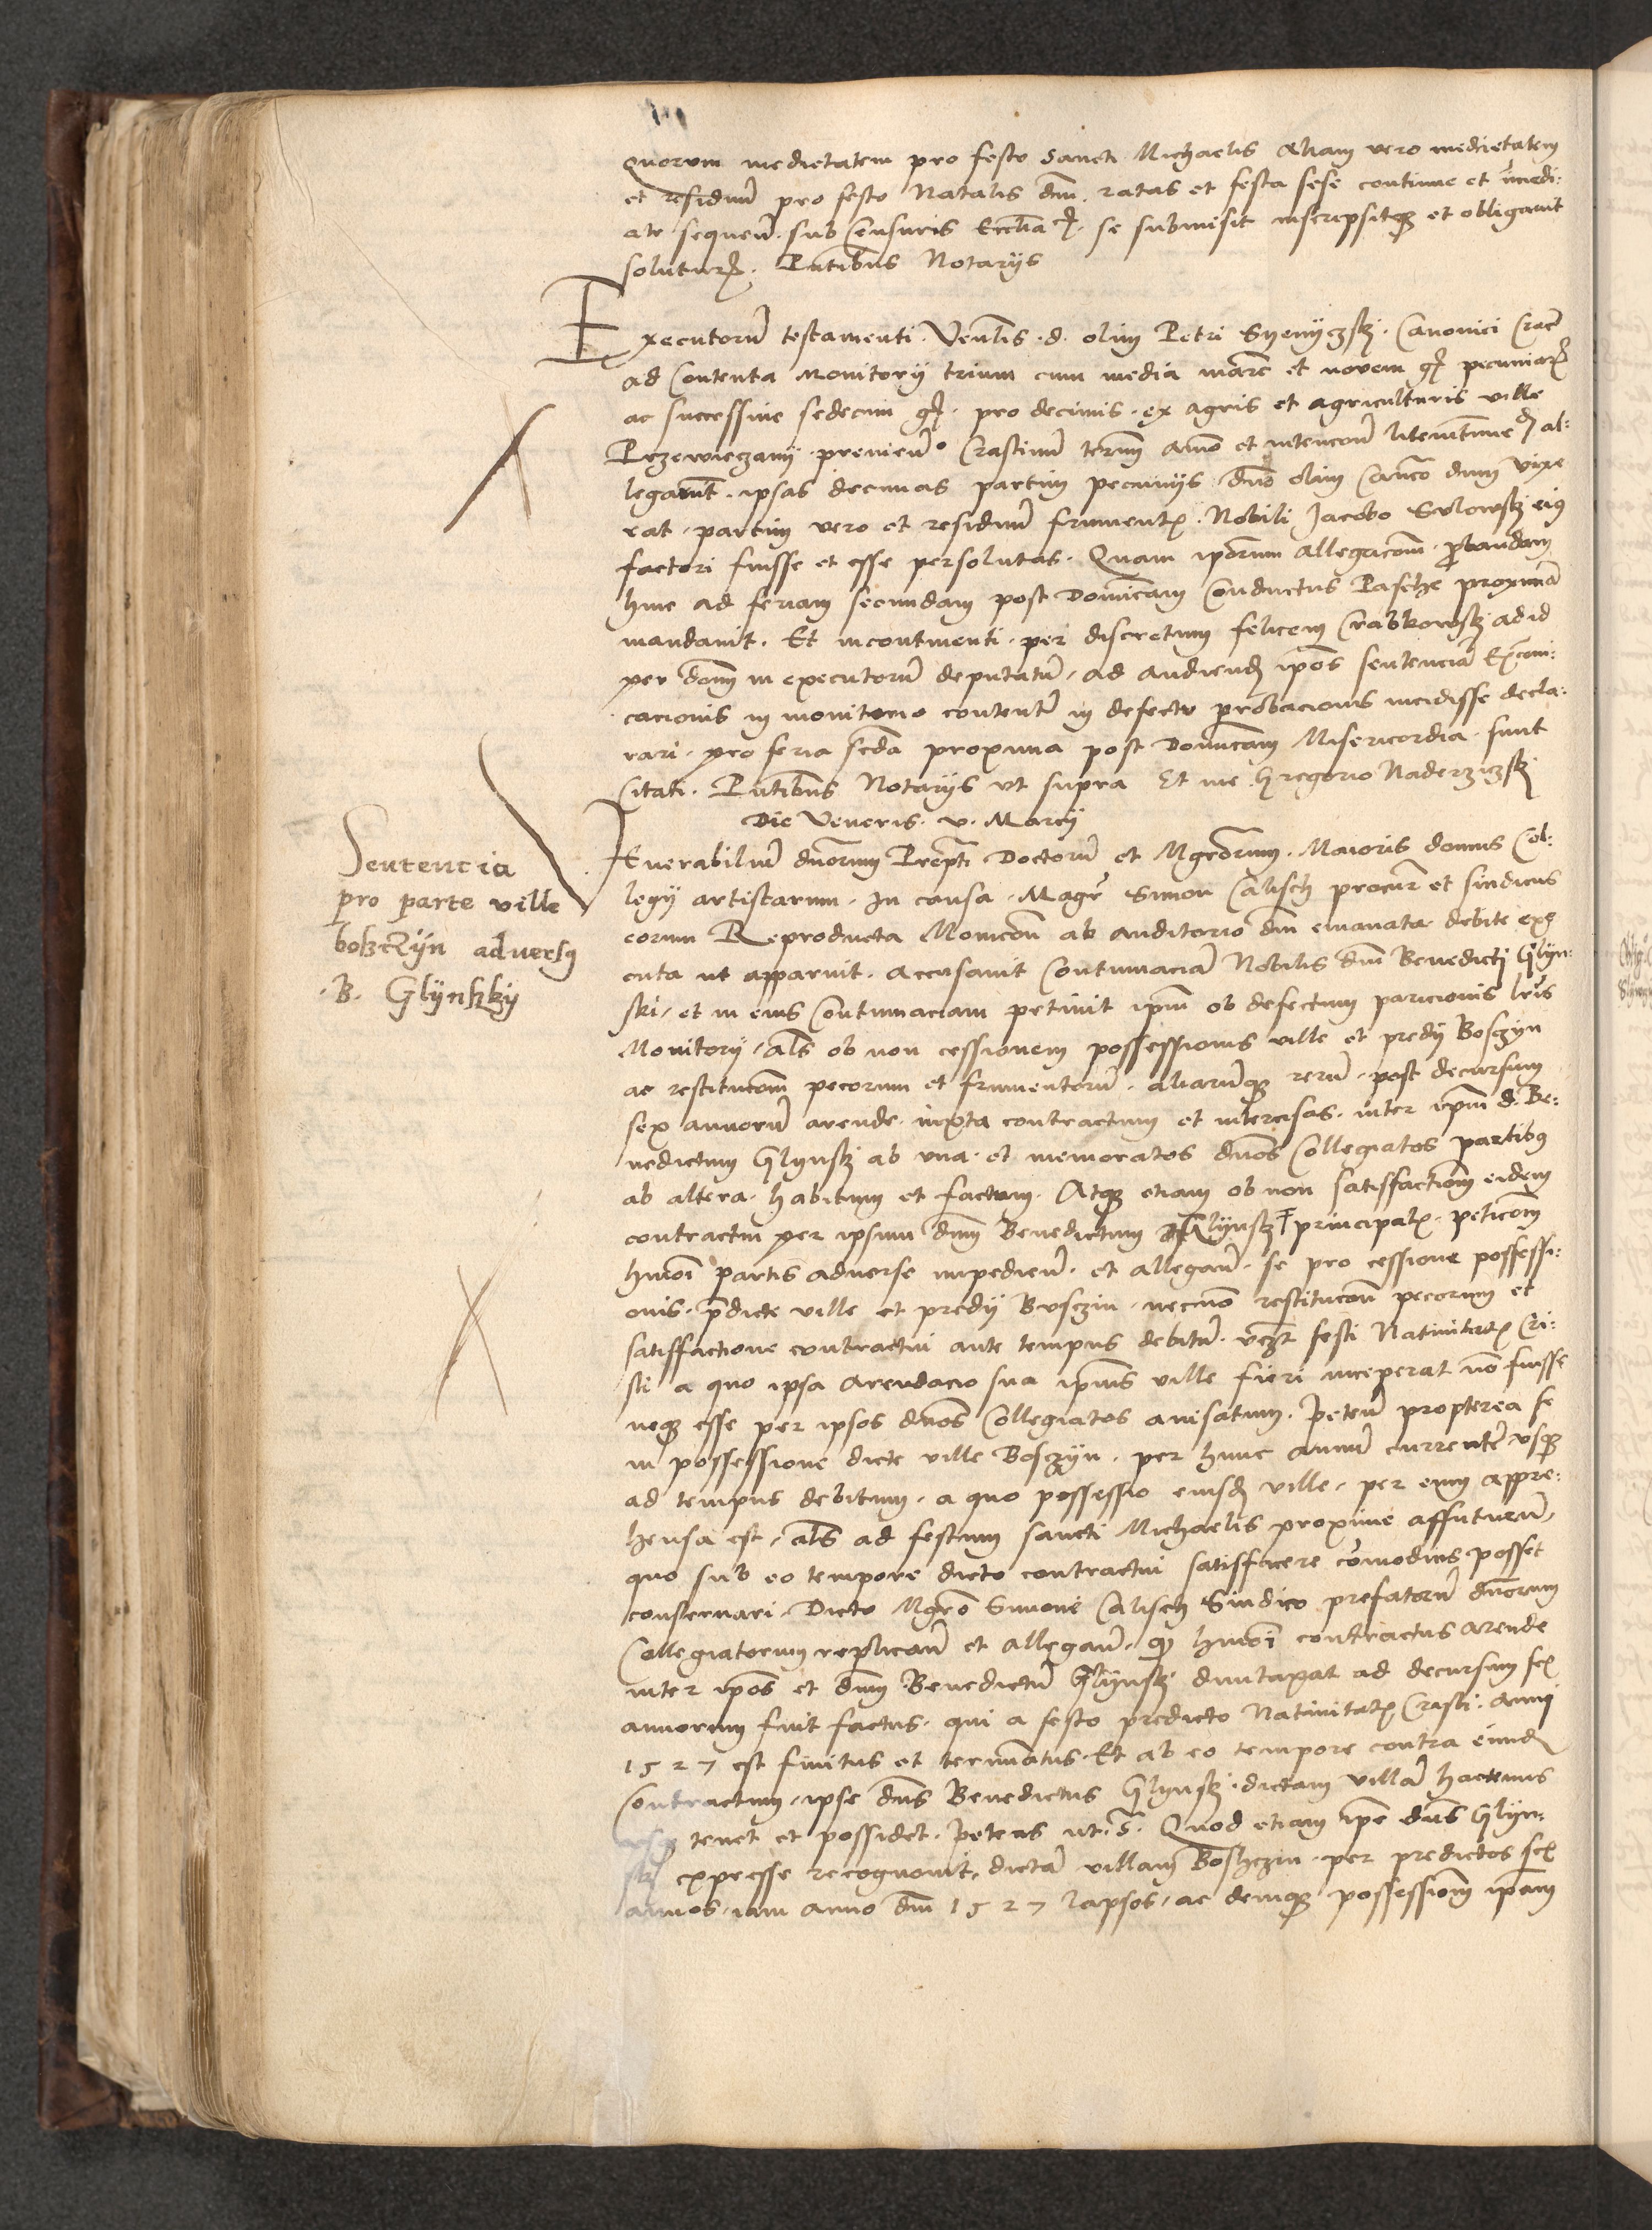 quorum medietatem pro festo Sancti Michaelis Aliam vero medietatem
et residuũ pro festo Natalis dñi. ratas et festa sese continue et īmedi:
ate sequeñ. sub Censuris Eccl̃ia. se submisit inscripsitqȝ et obligavit
soluturꝝ. Pñtibus Notarijs
Executorũ testamenti. Veñlis. d. olim Petri Canonici Crac̃
ad Contenta Monitorij trium cum media marc̃ et novem gꝝ pecuniarꝝ
ac successive sedecim gꝝ. pro decimis. ex agris et agriculturis ville
Przewieczanij. provieñ. Crastinũ termĩ Anno et al:
legarũt. ipsas decimas partim pecunijs dño olim Canco dum vixe
rat. partim vero et residuũ frumentꝭ. Nobili Jacobo eiꝯ
factori fuisse et esse persolutas. Quam ip̃orum allegacõem. ꝓbandam
hinc ad feriam secundam post Dominicam Conductus Pasche proximã
mandavit. Et incontinenti. per discretum felicem ad id
per dõm in executorũ deputatũ, ad audienꝺ ip̃os sentenciã Excom̃:
cacionis in monitorio contentã in defectu probacionis incidisse decla:
rari. pro feria scd̃a proxima post Dominicam Misericordia. sunt
Citati. Pñtibus Notarijs ut supra Et me Gregorio
Die Veneris. v. Marcij
Sentencia
pro parte ville
boszczÿn adversꝯ
.B. Glÿnszkÿ
Venerabiliũ dñorum Prepti Doctorũ et Mgrõrum. Maioris domus Col:
legij artistarum. In causa. Magr̃ Simon Calisch procur̃ et sindicus
eorum Reproducta Monicõem ab auditorio dñi emanata debite exe
cuta ut apparuit. accusavit Contumaciã Nobilis dñi Benedicti Glÿn:
ski, et in eius Contumaciam petivit ip̃m ob defectum paricionis lr̃is
Monitorij, al̃s ob non cessionem possessionis ville et predij Boszyn
ac restitucõem pecorum et frumentorũ. aliarũqȝ rerũ. post decursum
sex annorũ arende. iuxta contractum et intercisas. inter ip̃m d. Be:
nedictum Glynsk̃ ab una. et memoratos dños Collegiatos partibꝯ
ab altera. habitum et factum. Atqȝ etiam ob non satisfactioñ eidem
contractui per ipsum dñm Benedictum Glÿnsk̃ principalꝭ. peticõem
hmõi partis adverse impedieñ. et allegañ. se pro cessione possessi:
onis. p̃dicte ville et predij Boszin. necnõ restitucõem pecorum et
satisfactione contractui ante tempus debitũ. festi Nativitatꝭ Cri:
sti a quo ipsa Arendacio sua ip̃ius ville fieri inceperat nõ fuisse
neqȝ esse per ipsos dños Collegiatos avisatum. Peteñ propterea se
in possessione dicte ville Boszyn. per hunc annũ currentẽ usqȝ
ad tempus debitum. a quo possessio eiusꝺ ville, per eum appre:
hensa est, al̃s ad festum sancti Michaelis proxime affuturũ,
quo sub eo tempore dicto contractui satisfacere cõmodius posset
conservari. Dicto Mgro Simone Calisch Sindico prefatorũ dñorum
Collegiatorum replicañ et allegañ. qȝ hmõi contractus arende
inter ip̃os et dñm Benedictũ Glÿnsk̃ duntaxat ad decursum sex
annorum fuit factus. qui a festo predicto Nativitatꝭ Cristi. anni
1527 est finitus et terminatus. Et ab eo tempore contra eundꝺ
Contractum, ipse dñs Benedictus Glynsk̃. dictam villã hactenus
usqȝ tenet et possidet. Petens ut. s̃. Quod etiam ip̃e dñs Glÿn:
ski expresse recognovit, dictã villam Boszczin. per predictos sex
annos, iam anno dñi 1527 lapsos, ac deniqȝ possessionem ip̃am